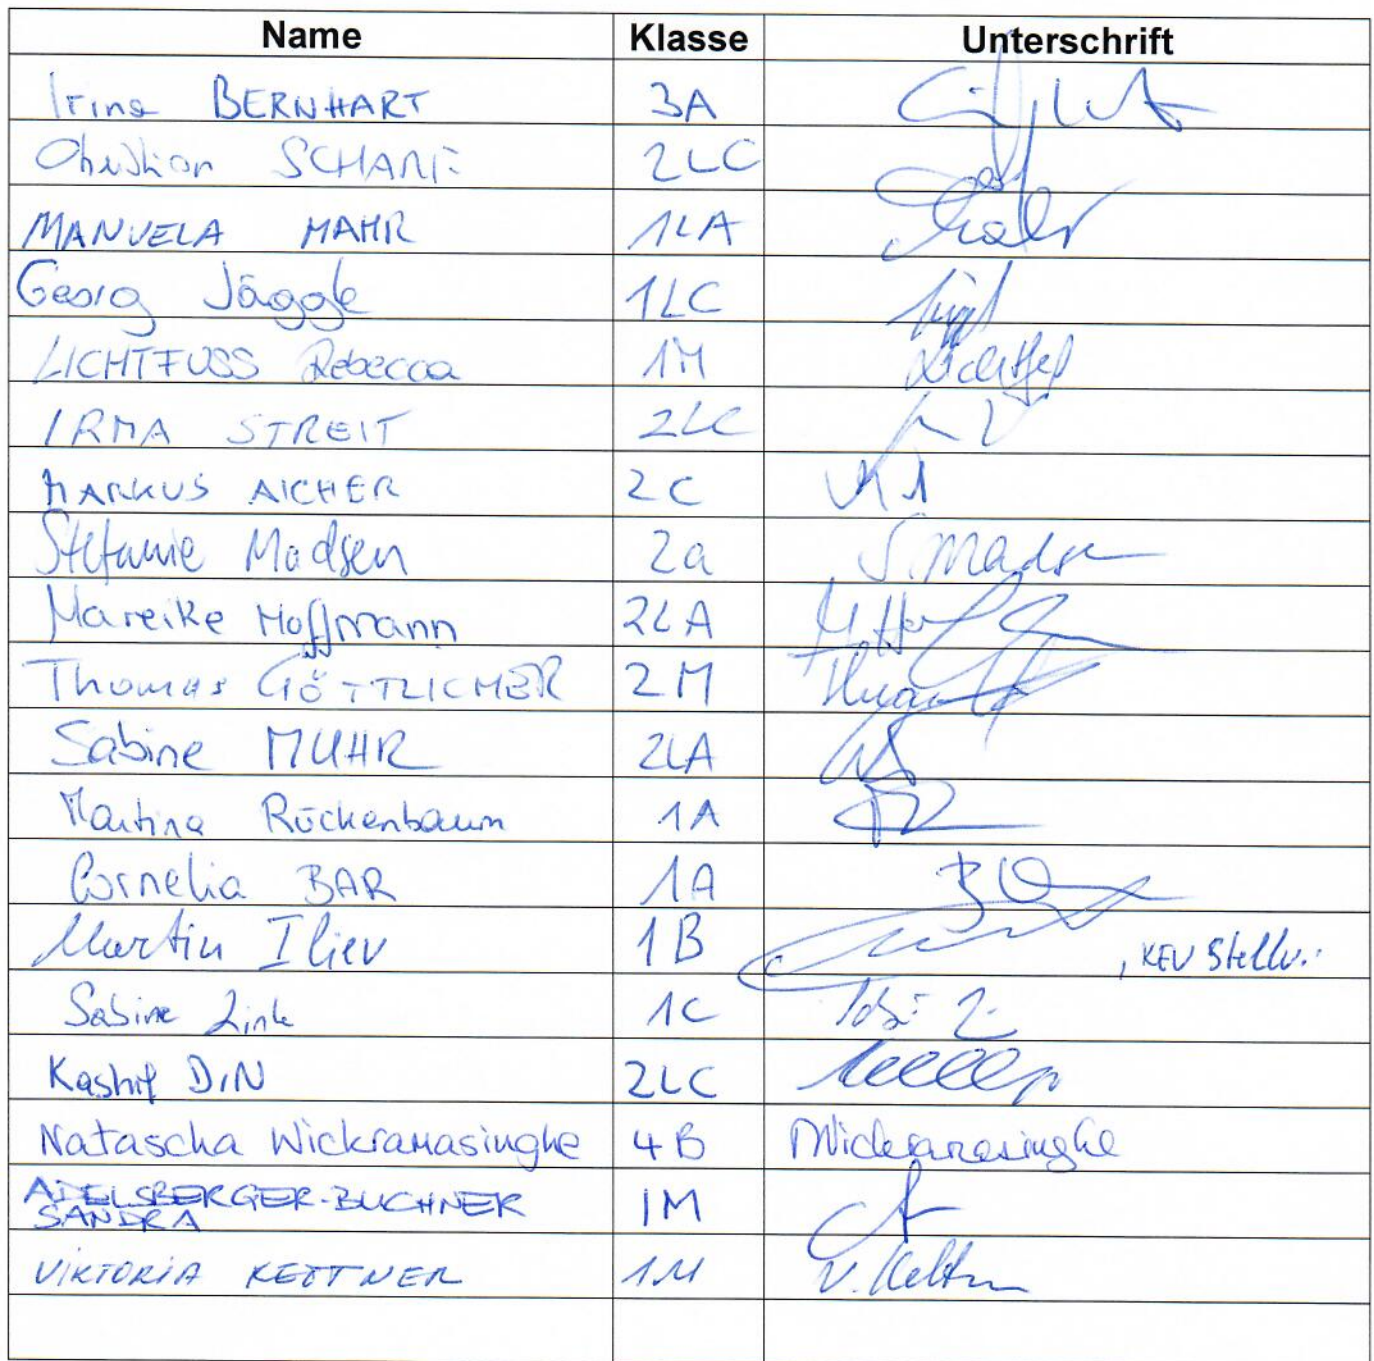 Name Klasse Unterschrift
Irina BERNHART 3A
Christian SCHARF 2LC
MANUELA MAHR 1LA
Georg Jäggle 1LC
LICHTFUSS Rebecca 1M
IRMA STREIT 2LC
MARKUS AICHER 2C
Stefanie Madsen 2a S. Madsen
Mareike Hoffmann 2LA
Thomas GÖTTLICHER 2M
Sabine MUHR 2LA
Martina Röckenbaum 1A
Cornelia BAR 1A
Martin Iliev 1B , KEV Stellv.
Sabine Zink 1C
Kashif DIN 2LC
Natascha Wickramasinghe 4B NWickramasinghe
ADELSBERGER-BUCHNER 1M
SANDRA
VIKTORIA KETTNER 1M V. Kettner